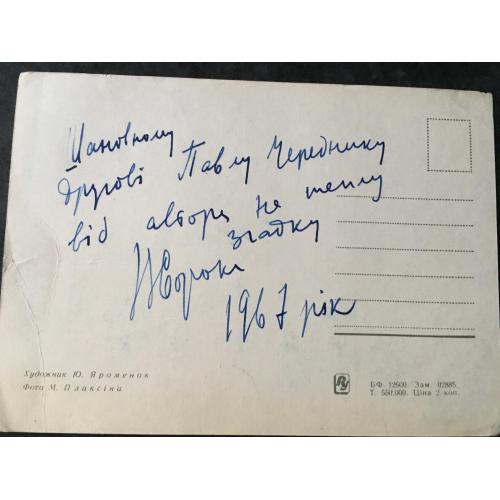 Шановному
другові Павлу Череднику
від автора на теплу
згадку
1967 рік
Художник Ю. Яроменок
Фото М. Плаксіна
БФ 12600. Зам. 02885.
Т. 550.000. Ціна 2 коп.